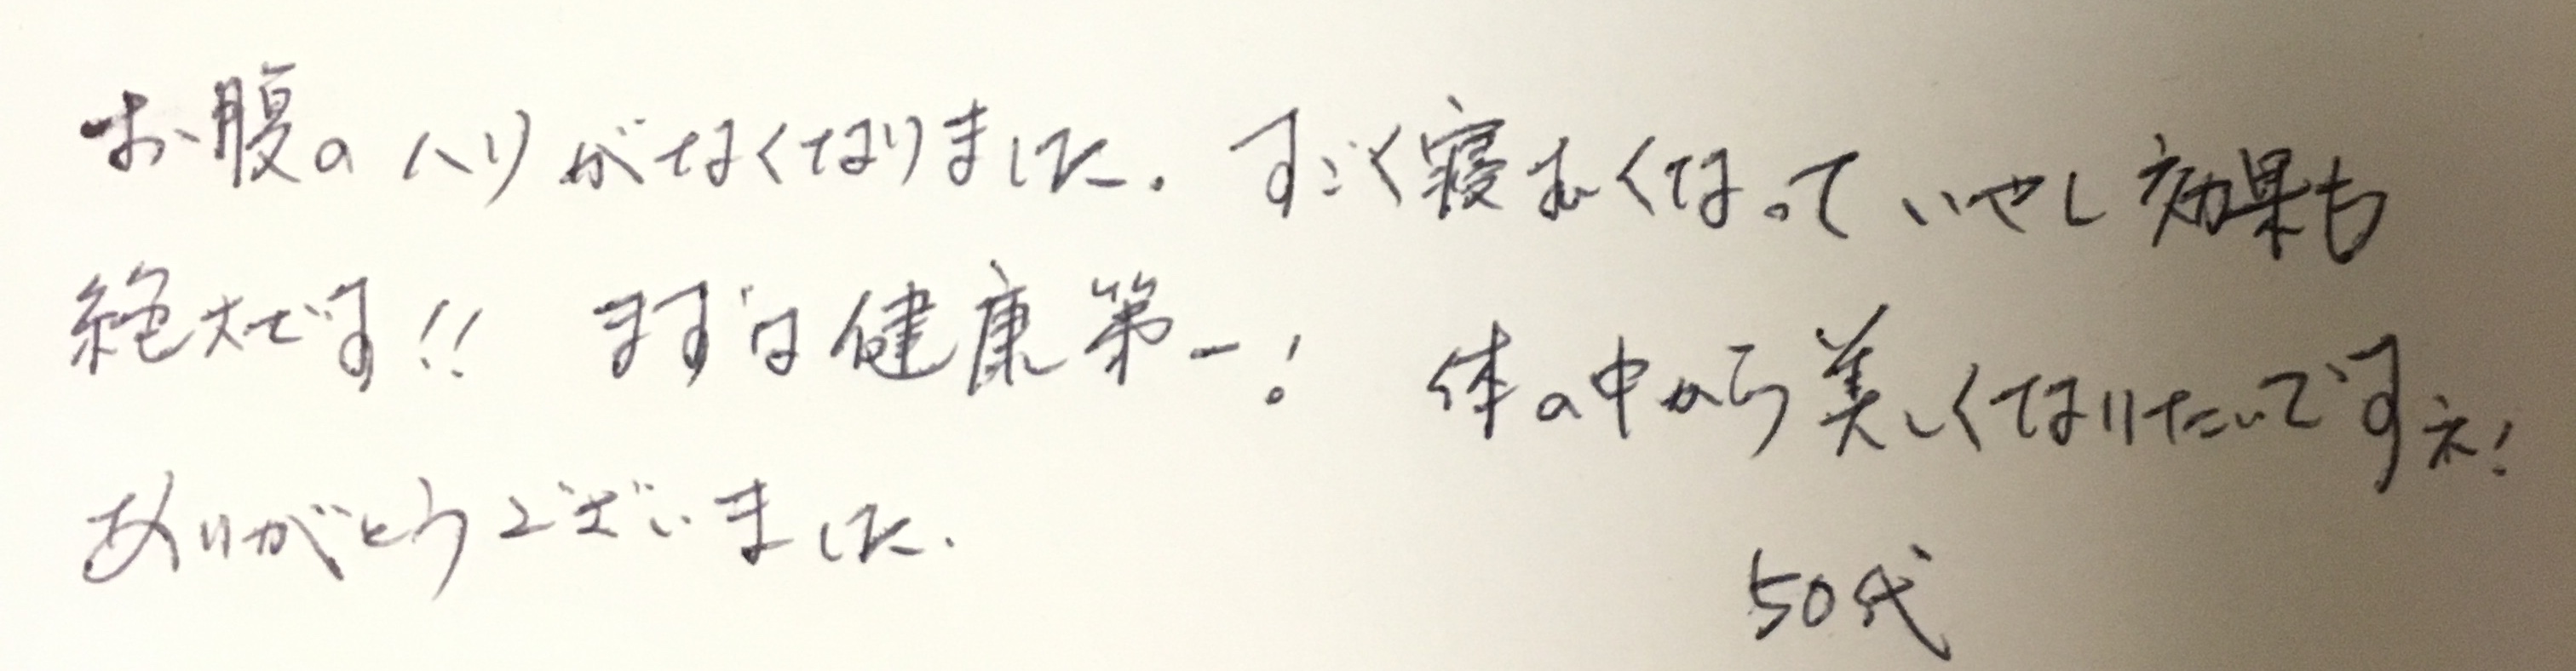 お腹のハリがなくなりました。すごく寝むくなっていやし効果も
絶大です!! まずは健康第一! 体の中から美しくなりたいですネ!
ありがとうございました。
50代